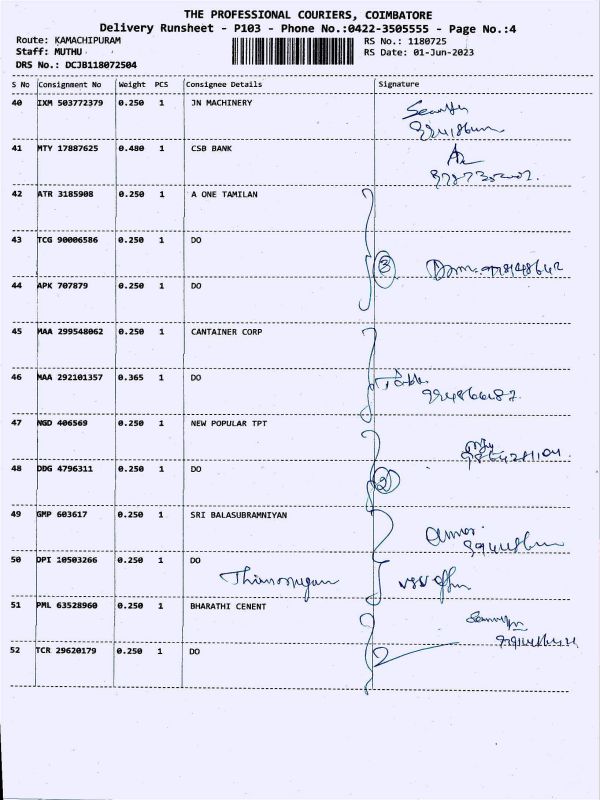 THE PROFESSIONAL COURIERS, COIMBATORE
Delivery Runsheet - P103 - Phone No.:0422-3505555 - Page No.:4
Route: KAMACHIPURAM RS No.: 1180725
Staff: MUTHU RS Date: 01-Jun-2023
DRS No.: DCJB118072504
S No Consignment No Weight PCS Consignee Details Signature
40 IXM 503772379 0.250 1 JN MACHINERY
41 MTY 17887625 0.480 1 CSB BANK
42 ATR 3185908 0.250 1 A ONE TAMILAN
43 TCG 90006586 0.250 1 DO 3
44 APK 707879 0.250 1 DO
45 MAA 299548062 0.250 1 CANTAINER CORP
46 MAA 292101357 0.365 1 DO
47 NGD 406569 0.250 1 NEW POPULAR TPT
48 DDG 4796311 0.250 1 DO 2
49 GMP 603617 0.250 1 SRI BALASUBRAMNIYAN
50 DPI 10503266 0.250 1 DO
51 PML 63528960 0.250 1 BHARATHI CENENT
52 TCR 29620179 0.250 1 DO 2